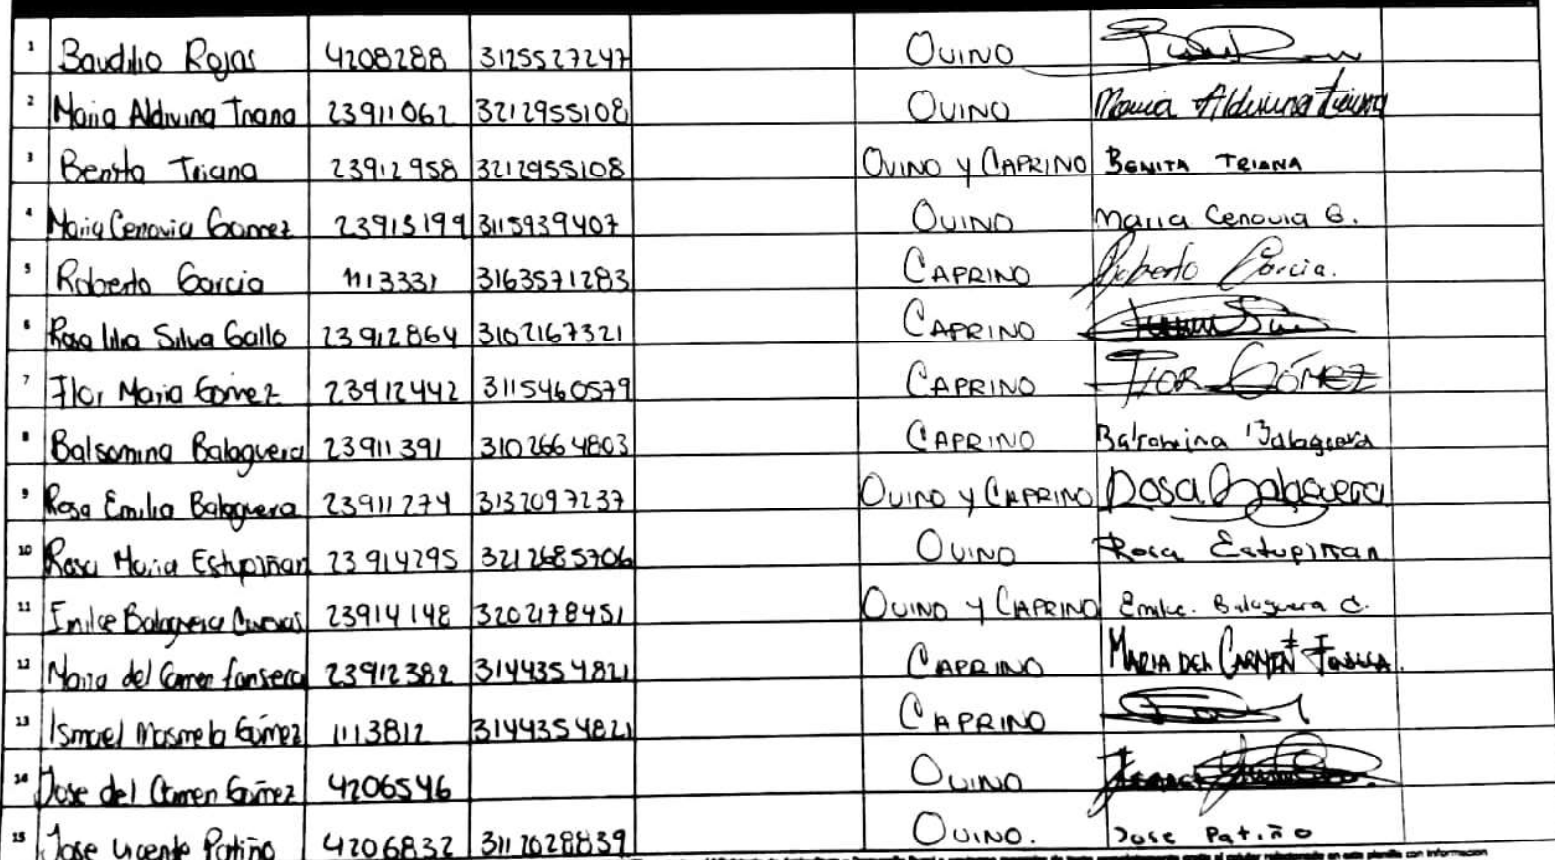 1 Baudilio Rojas 4208288 3125527247 OVINO
2 Maria Aldivina Triana 23911062 3212955108 OVINO Maria Aldivina Triana
3 Benita Triana 23912958 3212955108 OVINO Y CAPRINO BENITA TRIANA
4 Maria Cenovia Gomez 23913199 3115939407 OVINO Maria Cenovia G.
5 Roberto Garcia 1113331 3163571283 CAPRINO Roberto Garcia.
6 Rosa lilia Silva Gallo 23912864 3102167321 CAPRINO
7 Flor Maria Gomez 23912442 3115460579 CAPRINO FLOR GÓMEZ
8 Balsamina Balaguera 23911391 3102664803 CAPRINO Balsamina Balaguera
9 Rosa Emilia Balaguera 23911274 3132097237 OVINO Y CAPRINO Rosa Balaguera
10 Rosa Maria Estupiñan 23914295 3212685706 OVINO Rosa Estupiñan
11 Emilce Balaguera Cuevas 23914148 3202178451 OVINO Y CAPRINO Emilce. Balaguera C.
12 Maria del Carmen fonseca 23912382 3144354821 CAPRINO MARIA DEL CARMEN FONSECA.
13 Ismael Masmela Gómez 1113812 3144354821 CAPRINO
14 Jose del Carmen Gómez 4206546 OVINO
15 Jose vicente Patiño 4206832 3112028839 OVINO. Jose Patiño